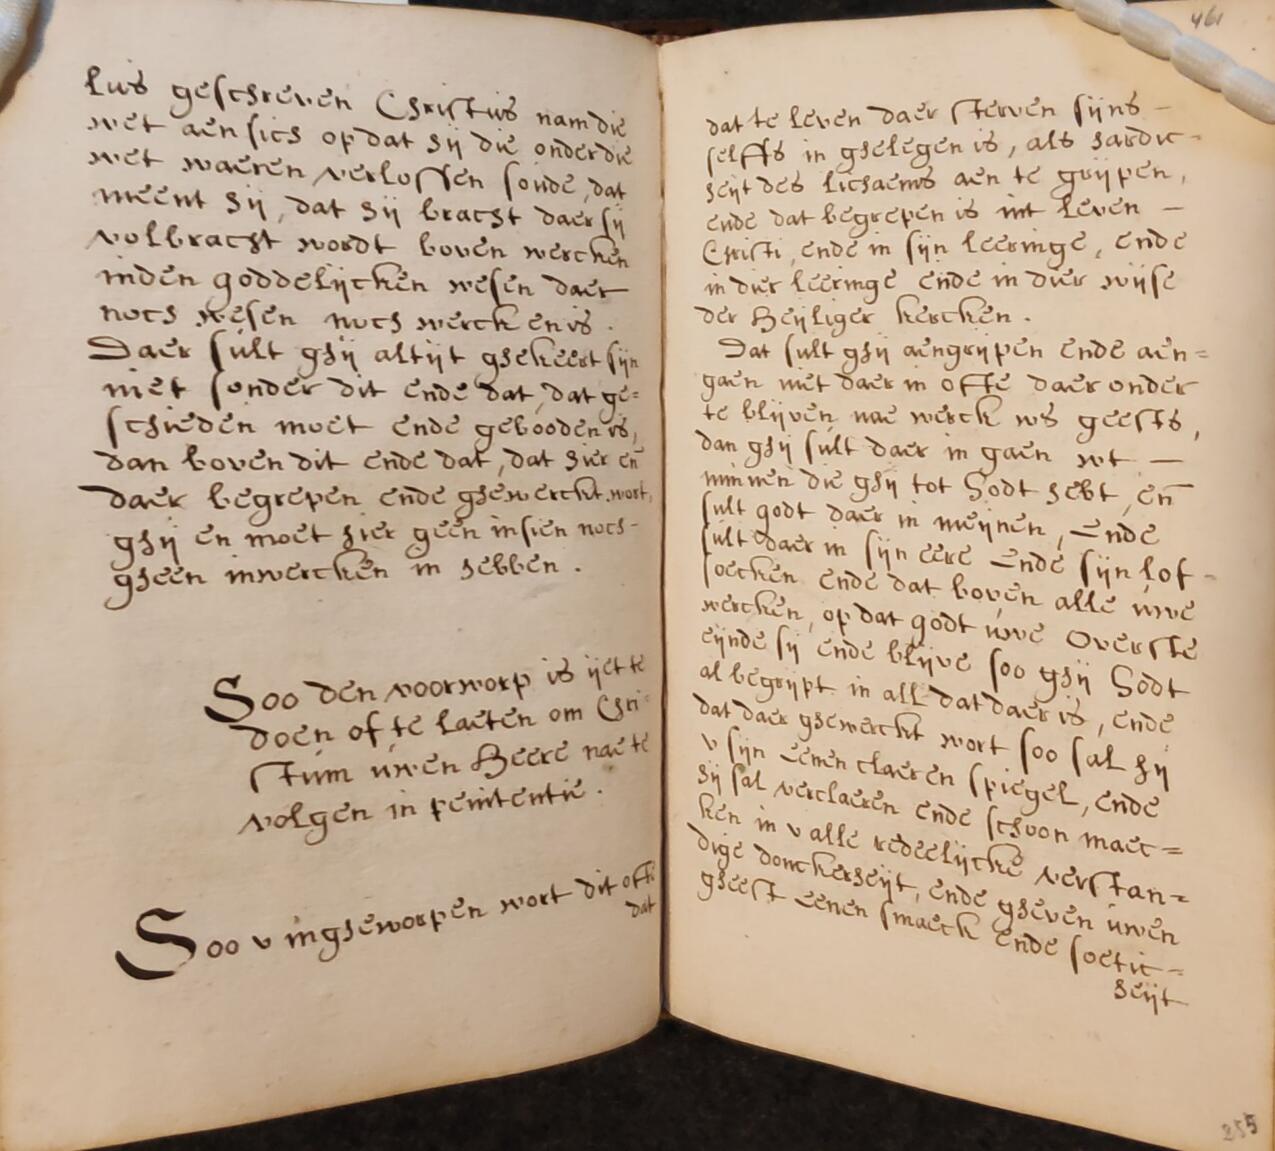 lus geschreven Christus nam die
wet aen sich op dat hij die onder die
wet waeren verlossen soude, dat
meent hij, dat hij bracht daer sij
volbracht wordt boven wercken
inden goddelijcken wesen daer
noch wesen noch werck en is.
Daer sult ghij altijt ghekeert sijn
niet sonder dit ende dat, dat ge=
schieden moet ende gebooden is,
dan boven dit ende dat, dat hier en̄
daer begrepen ende ghewerckt wort,
ghij en moet hier geen insien noch-
gheen inwercken in hebben.
Soo den voorworp is ijet te
doen of te laeten om Chri-
stum uwen Heere nae te
volgen in penitentie.
Soo v ingheworpen wort dit ofte
dat
461
dat te leven daer sterven sijns -
selffs in ghelegen is, als hardic-
heijt des lichaems aen te grijpen,
ende dat begrepen is int leven -
Christi, ende in sijn leeringe, ende
in dier leeringe ende in dier wijse
der Heijliger kercken.
Dat sult ghij aengrijpen ende aen=
gaen niet daer in ofte daer onder
te blijven nae werck ws geests,
dan ghij sult daer in gaen wt -
minnen die ghij tot Godt hebt, en̄
sult godt daer in meijnen, Ende
sult daer in sijn eere Ende sijn lof-
soecken ende dat boven alle uwe
wercken, op dat godt uwe Overste
eijnde sij ende blijve soo ghij Godt
al begrijpt in all dat daer is, ende
dat daer ghewerckt wort soo sal hij
v sijn Eenen claeren spiegel, ende
hij sal verclaeren ende schoon maec=
ken in v alle redeelijcke verstan=
dige donckerheijt, ende gheven uwen
gheest Eenen smaeck ende soetic=
heijt
255